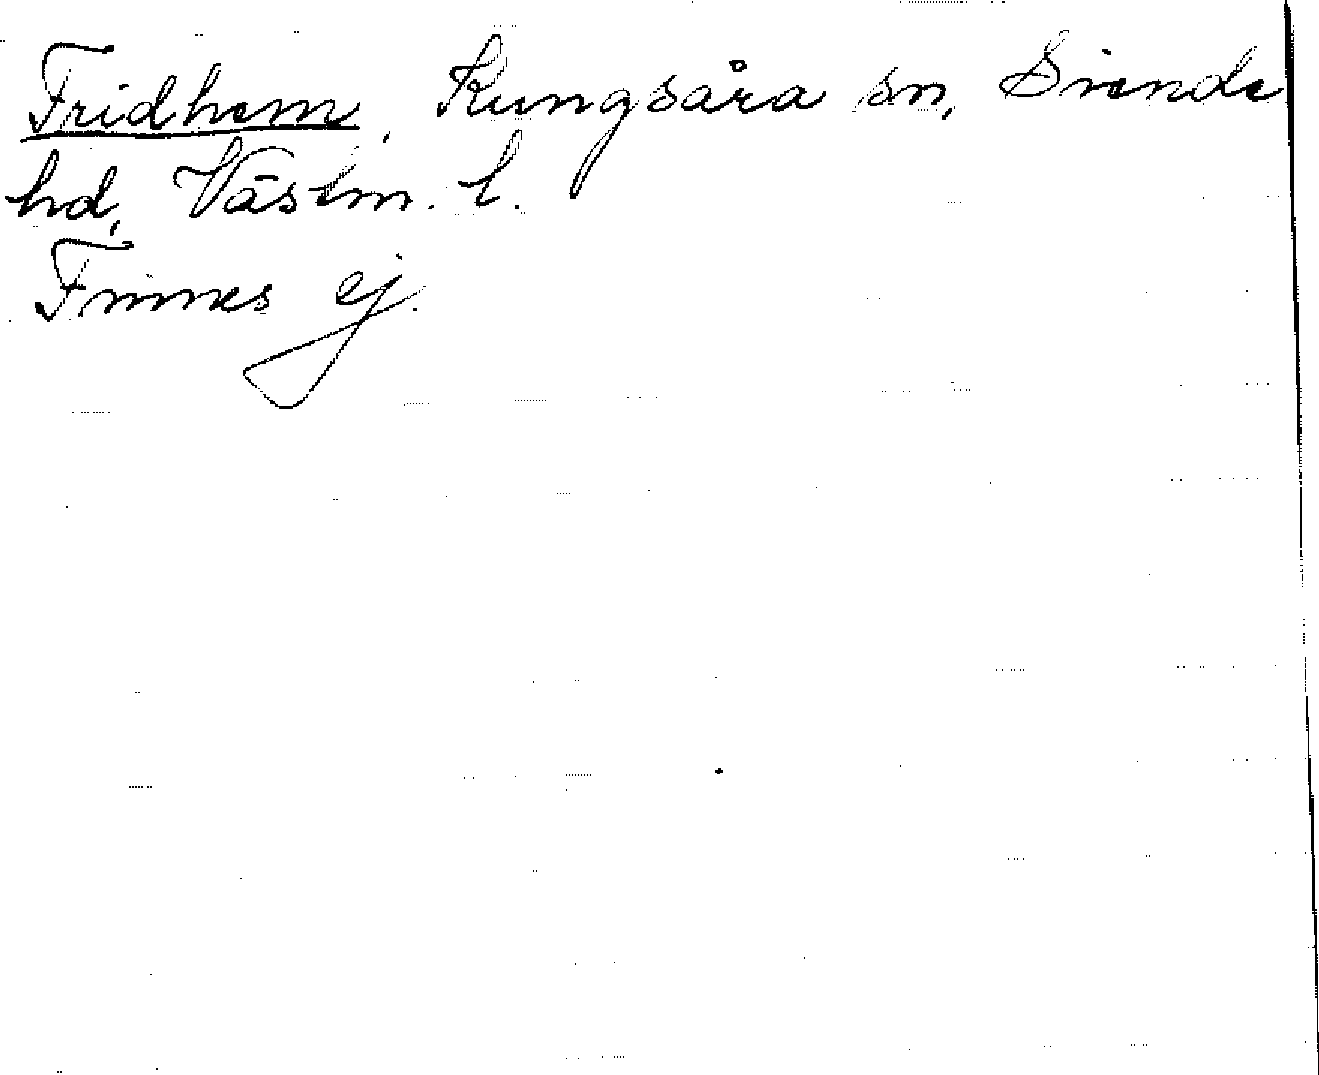 Fridhem, Kungsåra sn, Siende
hd, Västm. l.
Finnes ej.